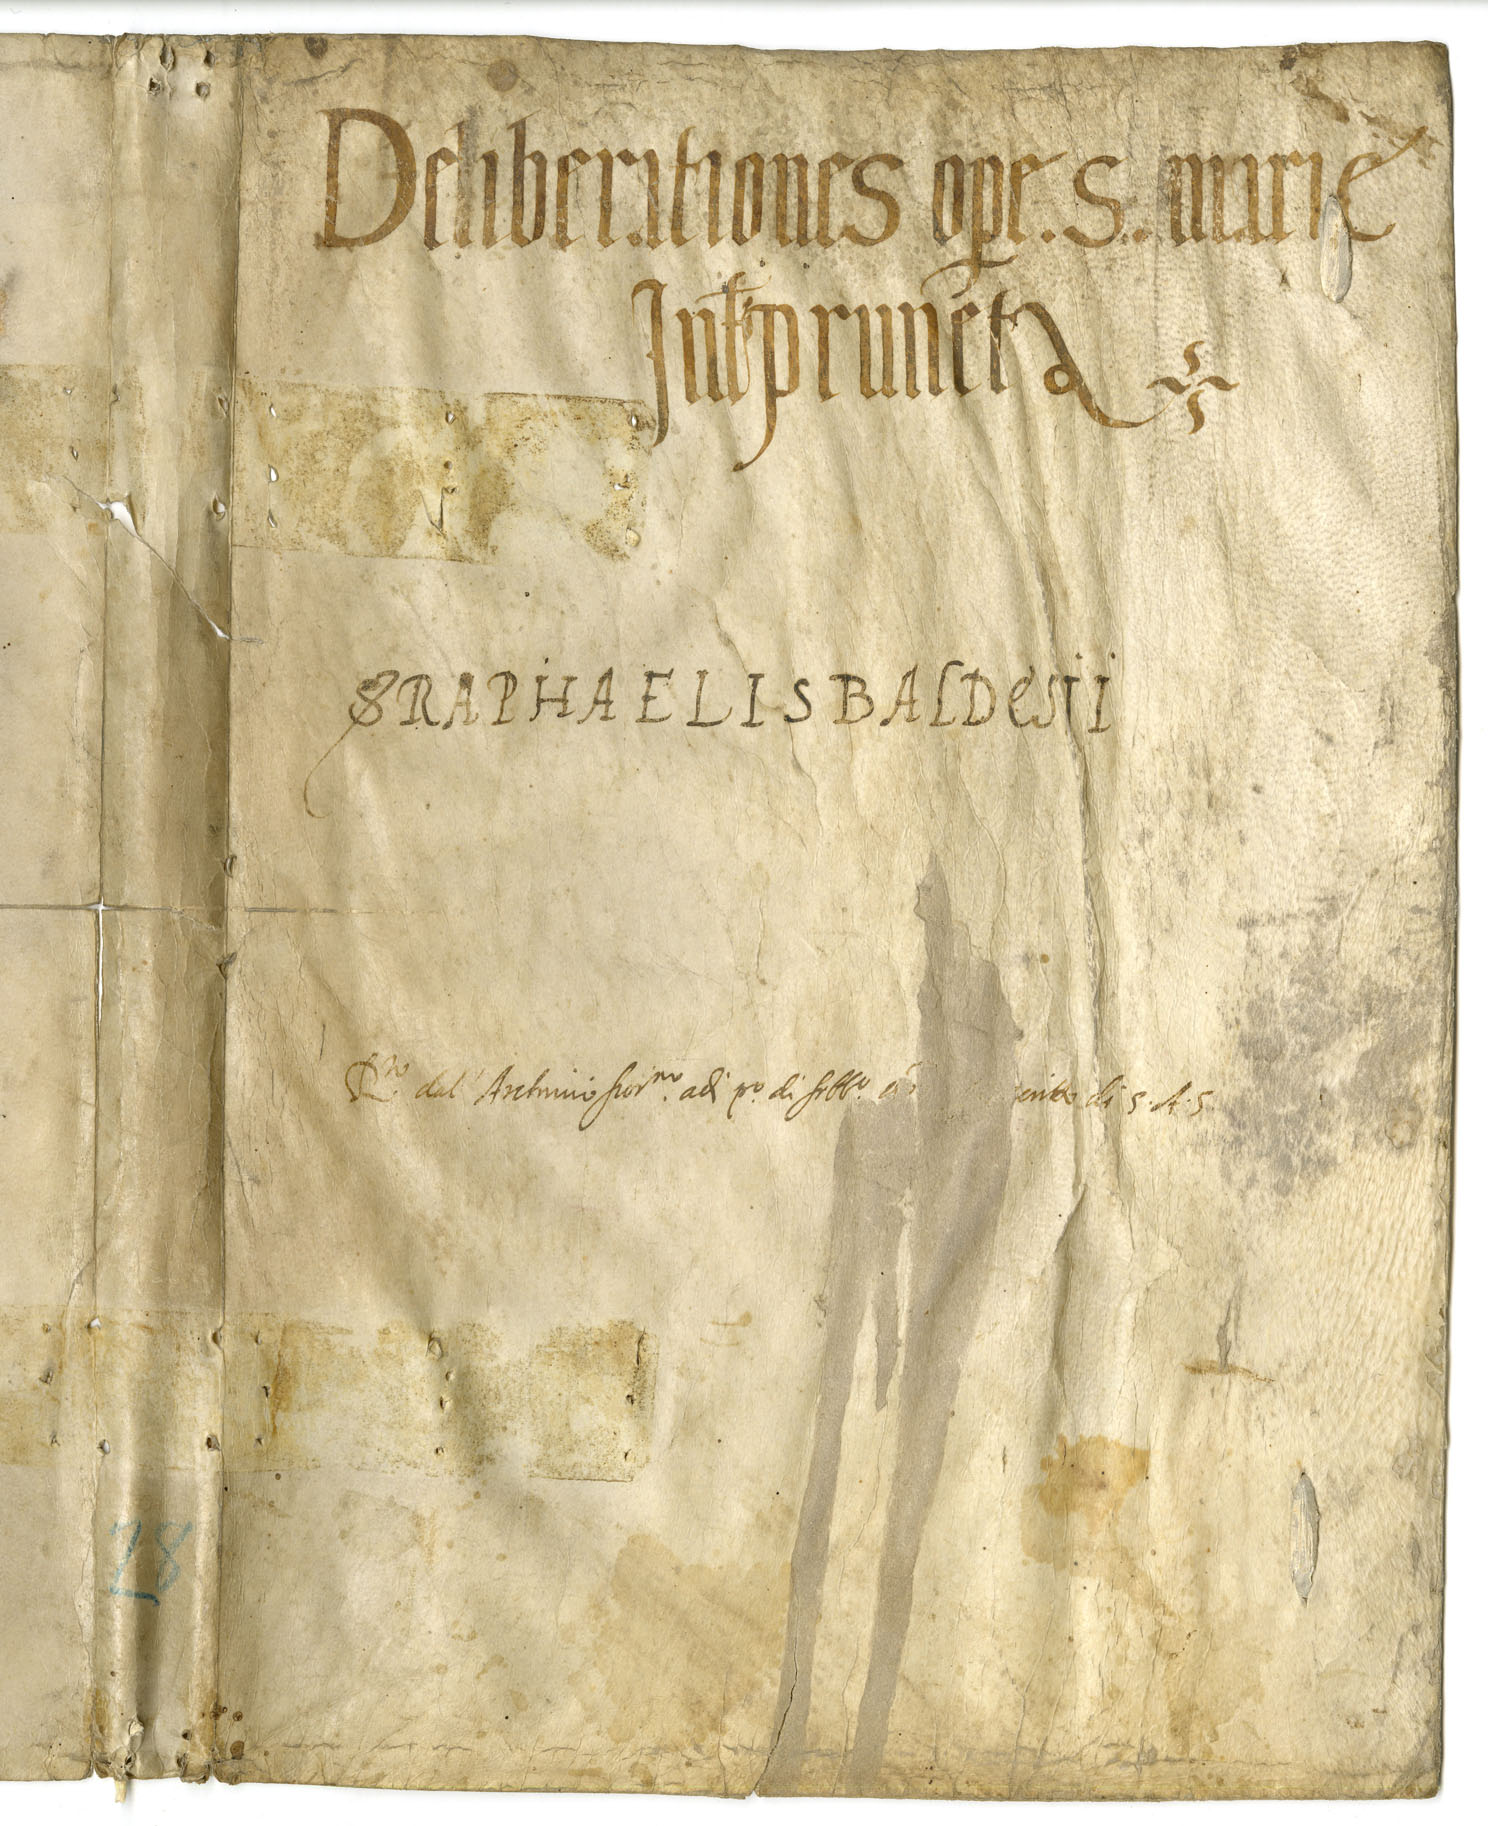 Deliberationes ope. S. marie
Inpruneta
S RAPHAELIS BALDESII
R.to dal' Archivio fior.no adi p.o di febb.o di S. A. S
28